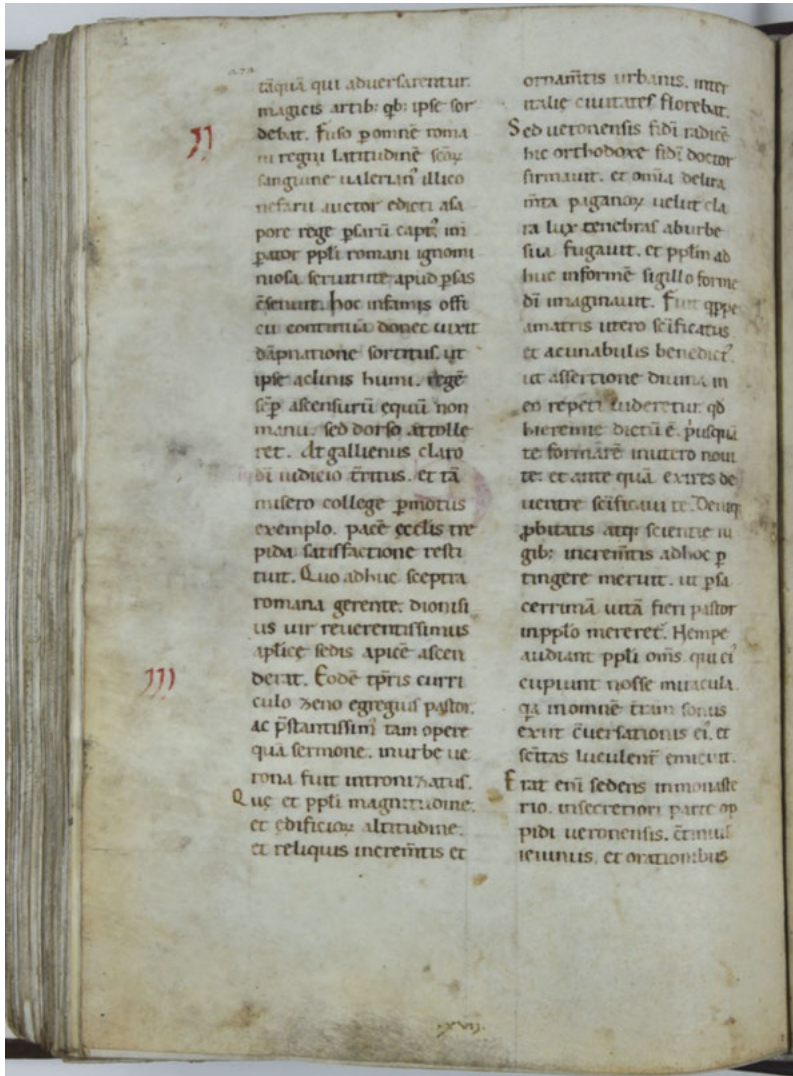 tāquā qui aduersarentur.
magicis artib: qb: ipse sor
debat. Fuso ꝑomnē roma
ni regni latitudinē scōꝝ
sanguine ualerian᾽ illico
nefarii auctor edicti asa
pore rege ꝑsarū capt᾽. im
ꝑator ppłi romani ignomi
niosa seruitute apud ꝑsas
c̄senuit. hoc infamis offi
cii continuā donec uixit
dāpnatione sortitus. ut
ipse aclinis humi. regē
sēꝑ ascensurū equū non
manu. sed dorso attolle
ret. At gallienus claro
dī iudicio t̄ritus. et tā
misero college ꝑmotus
exemplo. pacē ęcclis tre
pida satisfactione resti
tuit. Quo adhuc sceptra
romana gerente. dionisi
us uir reuerentissimus
aplice sedis apicē ascen
derat. Eodē tꝑris curri
culo zeno egregius pastor.
ac p̄stantissim᾽ tam opere
quā sermone. inurbe ue
rona fuit intronizatus.
Quę et ppłi magnitudine.
et ędificioꝝ altitudine.
et reliquis increm̄tis et
II
III
ornam̄tis urbanis. inter
italie ciuitates florebat.
Sed ueronensis fidī radicē
hic orthodoxe fidī doctor
firmauit. et om̄ia delira
m̄ta paganoꝝ uelut cla
ra lux tenebras aburbe
sua fugauit. et ppłm ad
huc informē sigillo forme
dī imaginauit. Fuit qꝑpe
amatris utero sc̄ificatus
et acunabulis benedict᾽.
ut assertione diuina in
eo repeti uideretur. qd
hieremie dictū ē. p᾽usquā
te formarē inutero noui
te. et ante quā exires de
uentre sc̄ificaui te. Deniq
ꝓbitatis atq: scientie iu
gib: increm̄tis adhoc ꝑ
tingere meruit. ut ꝑsa
cerrimā uitā fieri pastor
inppło mereret᾽. Nempe
audiant ppłi om̄s. qui ei᾽
cupiunt nosse miracula.
qa inomnē t̄ram sonus
exiit c̄uersationis ei᾽. et
sc̄itas luculent᾽ emicuit.
Erat eni sedens inmonaste
rio. insecretiori parte op
pidi ueronensis. c̄tinuis
ieiuniis. et orationibus
.xvii.